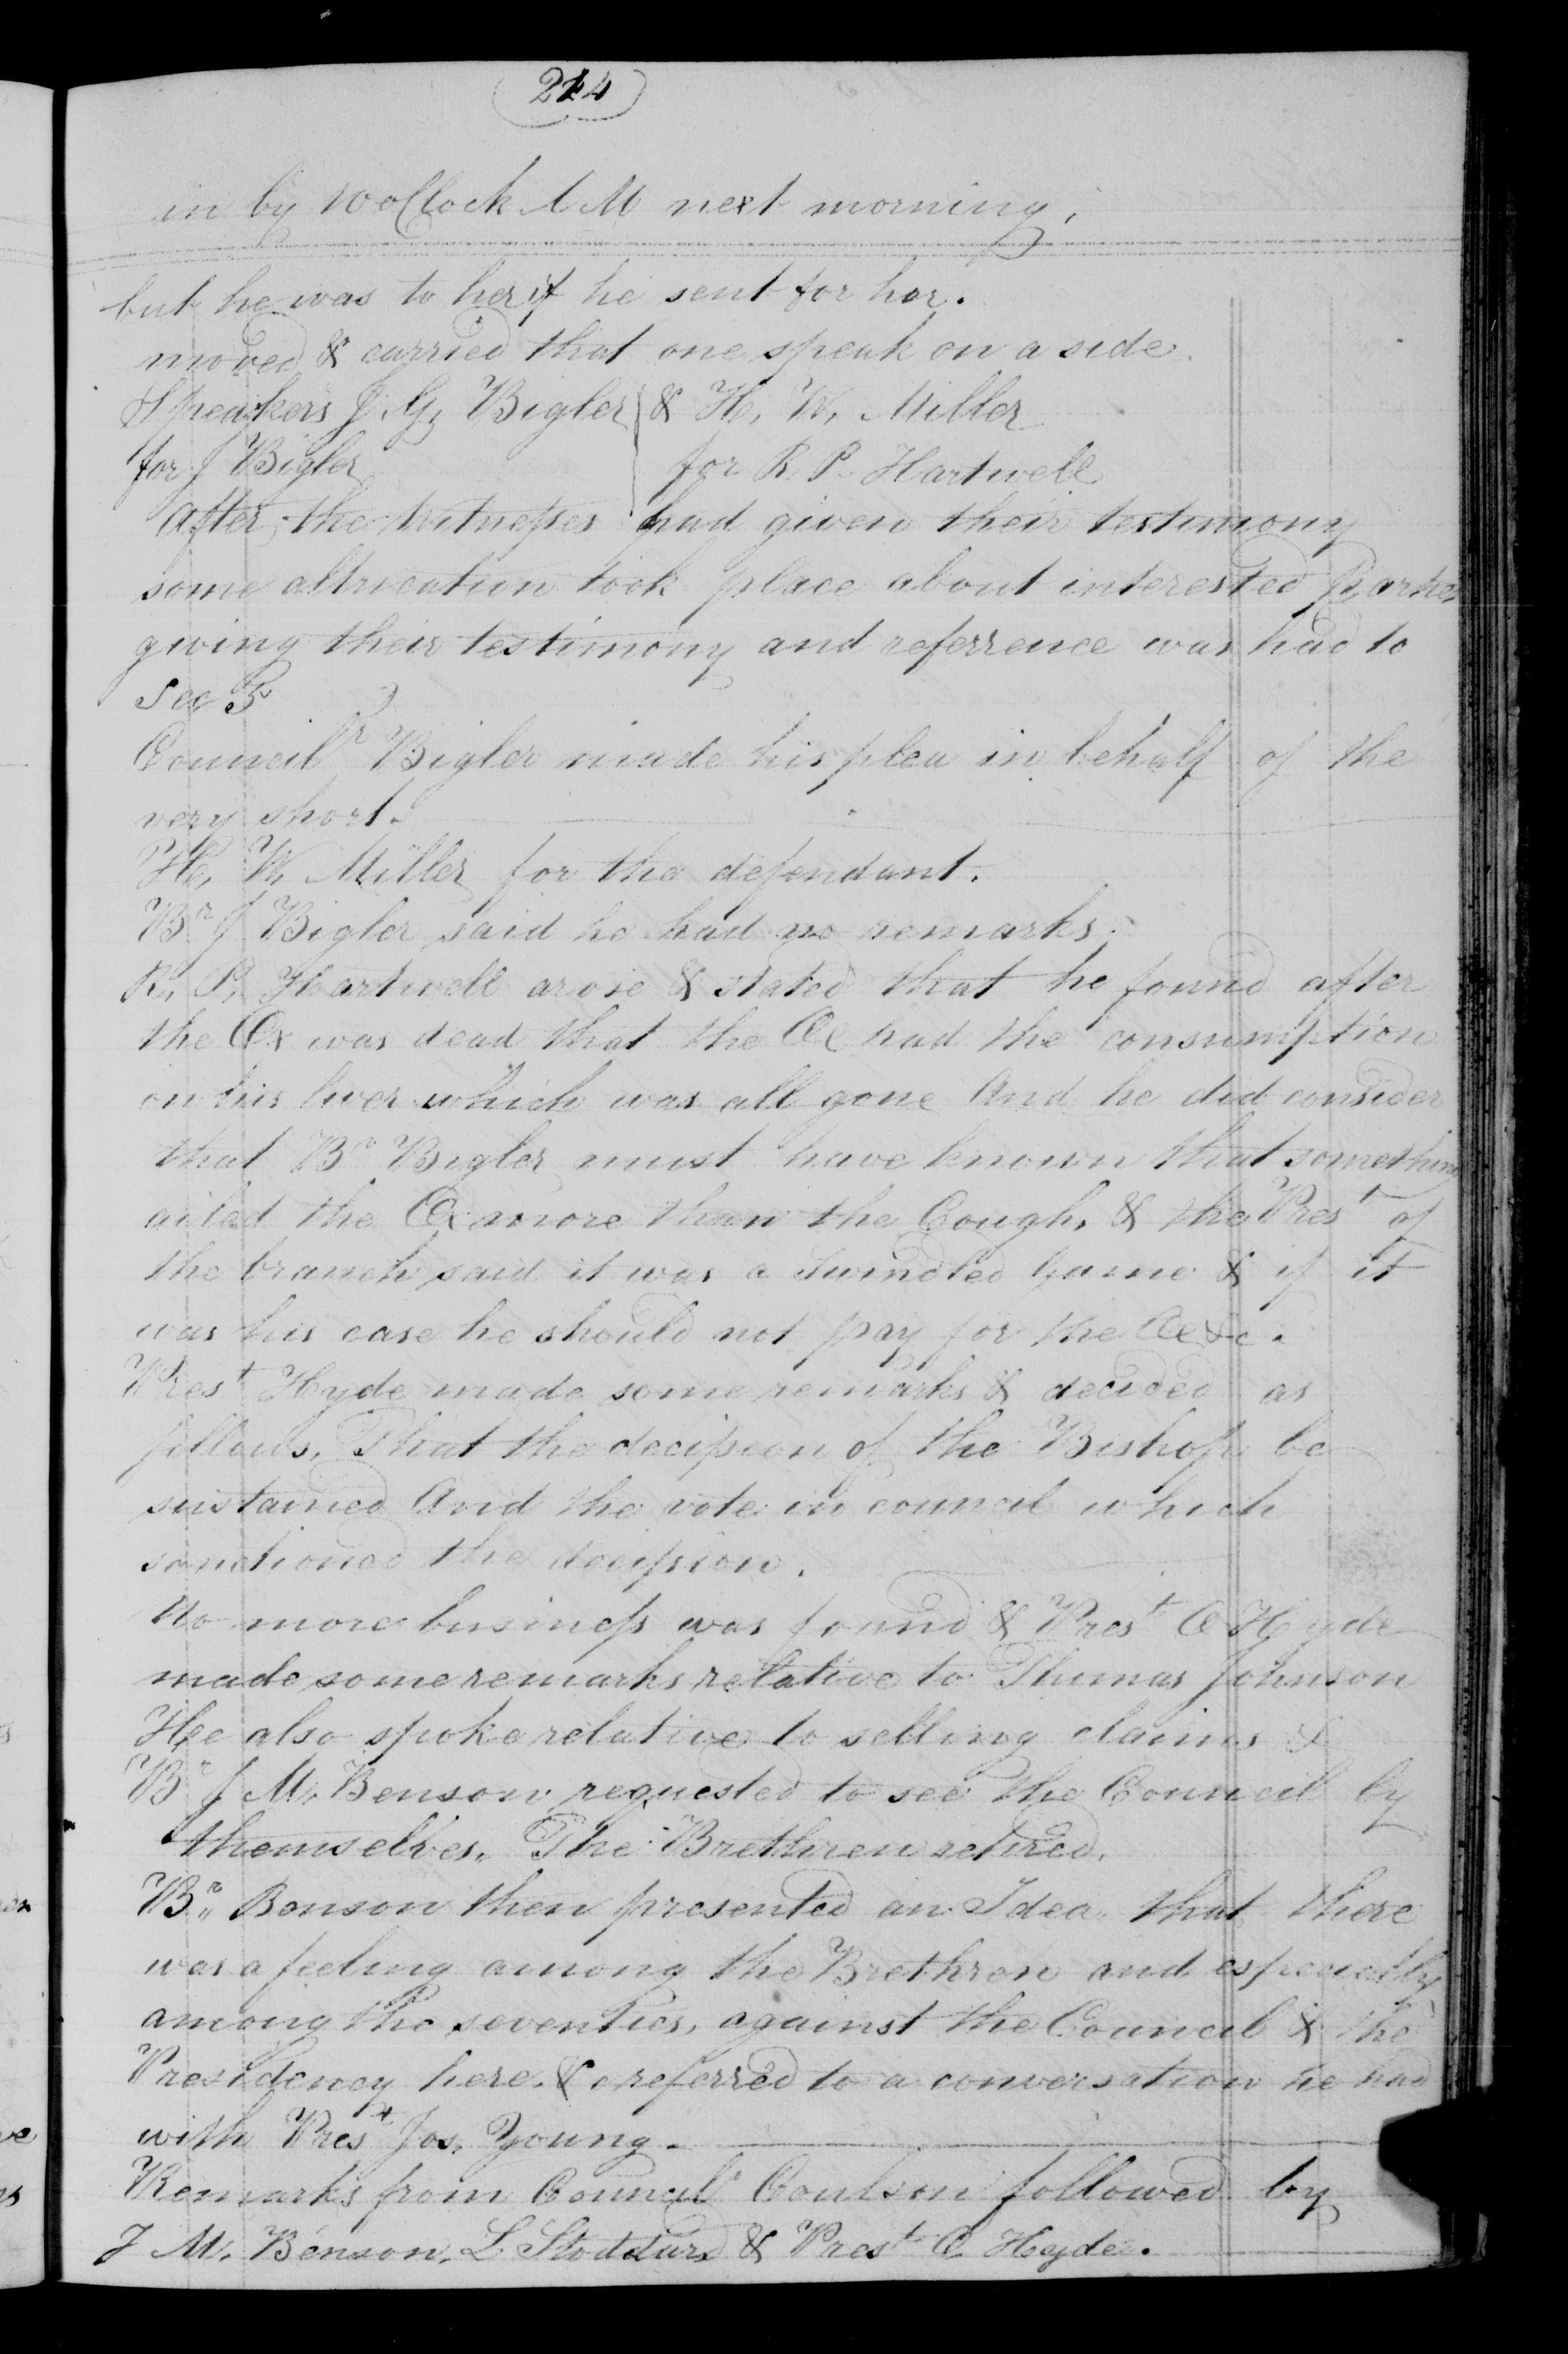 244
in by 10 oClock A M next morning,
but he was to her if he sent for her.
moved & carried that one speak on a side.
Speakers J. G. Bigler & H. W. Miller
for J Bigler for R P Hartwell
after the witnesses had given their testimony
some altrication took place about interested Parties
giving their testimony and referrence was had to
Sec 5
Councilr Bigler made his plea in behalf of the
very short.
H. W. Miller for the defendant.
Br J Bigler said he had no remarks.
R. P. Hartwell arose & stated that he found after
the Ox was dead that the Ox had the consumption
on his liver which was all gone And he did consider
that Br Bigler must have known that something
ailed the Ox more than the Cough, & the Prest of
the branch said it was a swindled Game & if it
was his case he should not pay for the Ox &c.
Prest Hyde made some remarks & decided as
follows. That the decission of the Bishop be
sustained And the vote in council which
sanctioned the decission.
No more business was found & Prest O Hyde
made some remarks relative to Thomas Johnson
He also spoke relative to selling claims &
Br J M. Benson requested to see the Council by
themselves. The Brethren retired.
Br Benson then presented an Idea that there
was a feeling among the Brethren and especially
among the seventies, against the Council & the
Presidency here. & referred to a conversation he had
with Prest Jos. Young.
Remarks from Council Coulson followed by
J M. Benson, L Stoddard & Prest O Hyde.